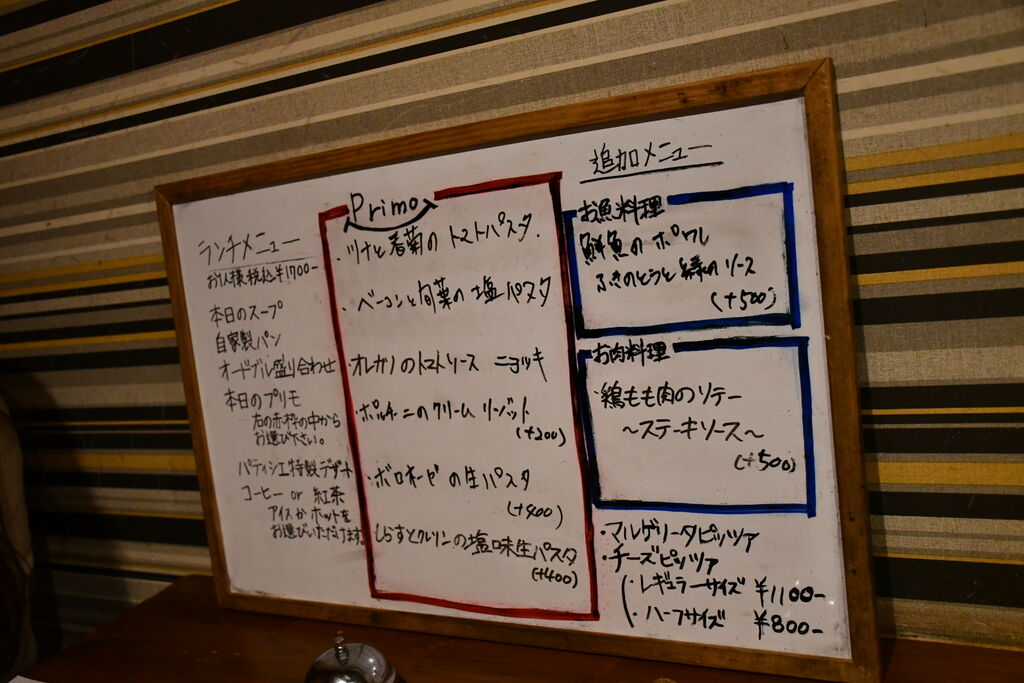 ランチメニュー
お1人様税込¥1700-
本日のスープ
自家製パン
オードブル盛り合わせ
本日のプリモ
右の赤枠の中から
お選び下さい。
パティシエ特製デザート
コーヒー or 紅茶
アイスかホットを
お選びいただけます。
Primo
・ツナと春菊のトマトパスタ.
・ベーコンと旬菜の塩パスタ
・オレガノのトマトソース ニョッキ
・ポルチーニのクリームリーゾット
(+200)
・ボロネーゼの生パスタ
(+400)
・しらすとカラスミの塩味生パスタ
(+400)
追加メニュー
お魚料理
鮮魚のポワレ
ふきのとうと緑のソース
(+500)
お肉料理
・鶏もも肉のソテー
～ステーキソース～
(+500)
・マルゲリータピッツァ
・チーズピッツァ
・レギュラーサイズ ¥1100-
・ハーフサイズ ¥800-